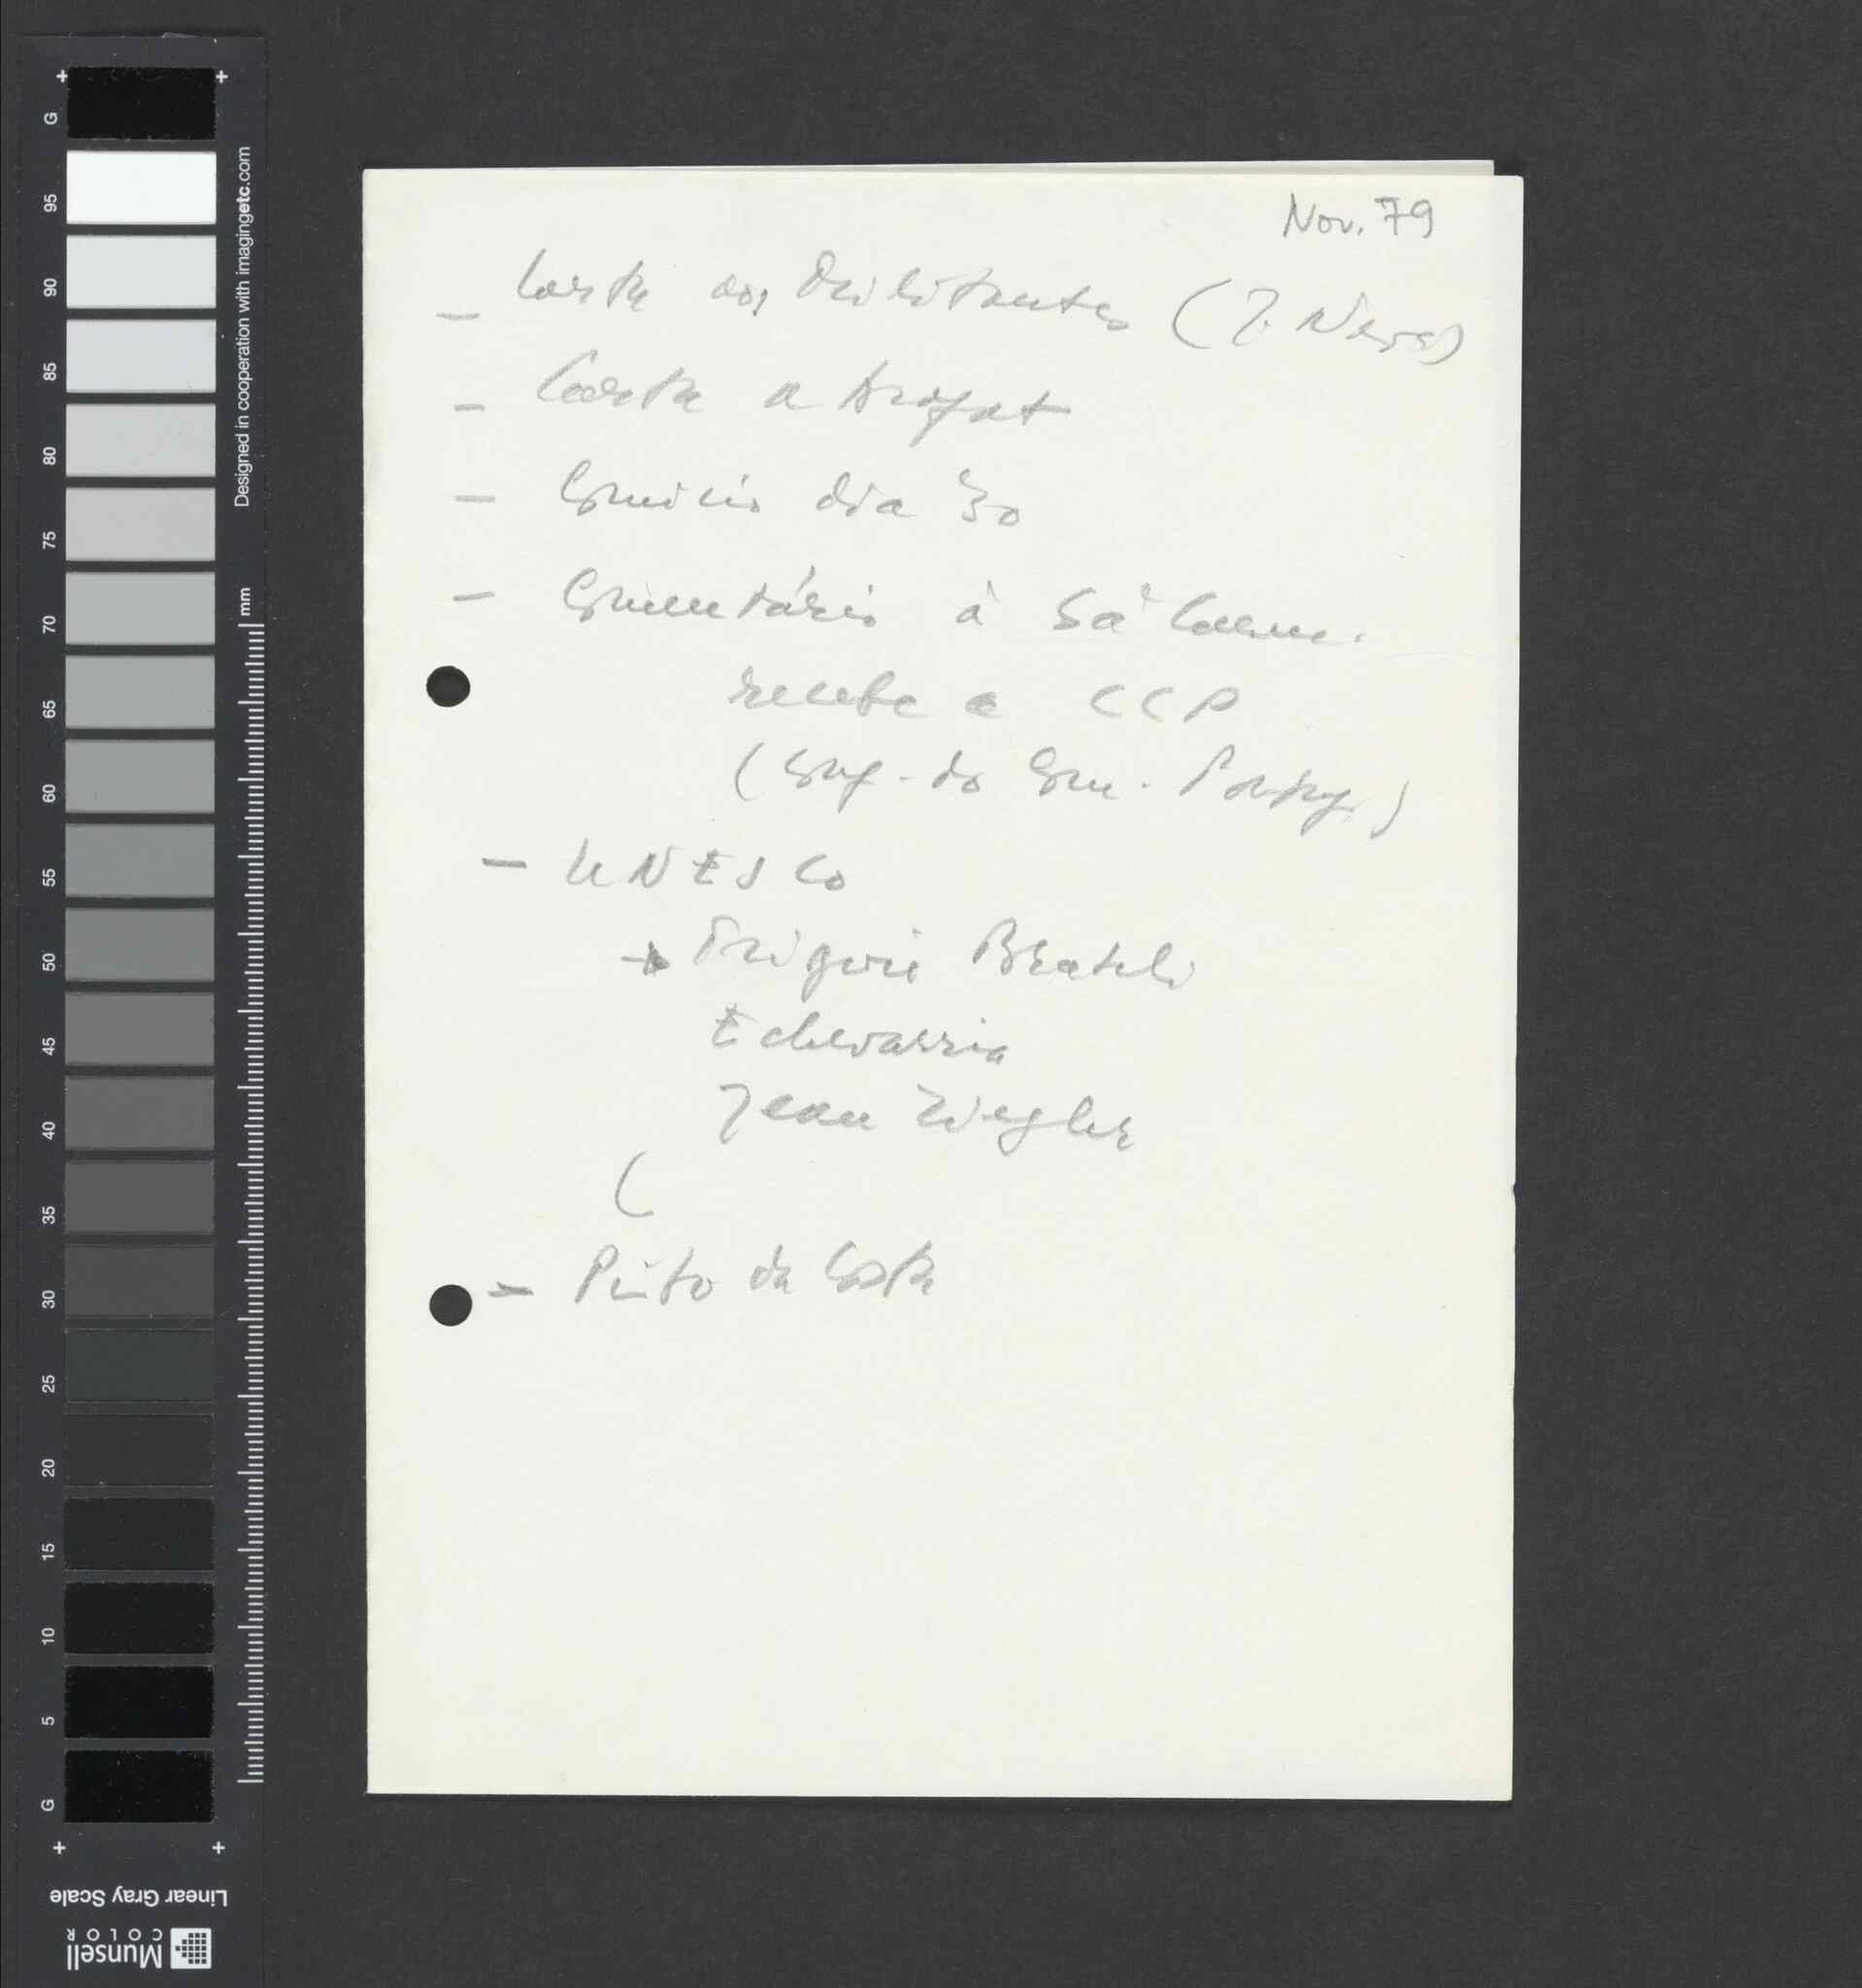 Nov. 79
- Carta aos Militantes (J. Neves)
- Carta a Arafat
- Comício dia 30
- Comentário à Sá Carn.
recebe a CCP
(Conf. do Com. Portug.)
- UNESCO
→ Trigvie Brateli
Echevarria
Jean Ziegler
(
- Pinto da Costa
G
95
90
85
80
75
70
65
60
55
50
45
40
35
30
25
20
15
10
5
G
Designed in cooperation with imagingetc.com
mm
Linear Gray Scale
Munsell
COLOR